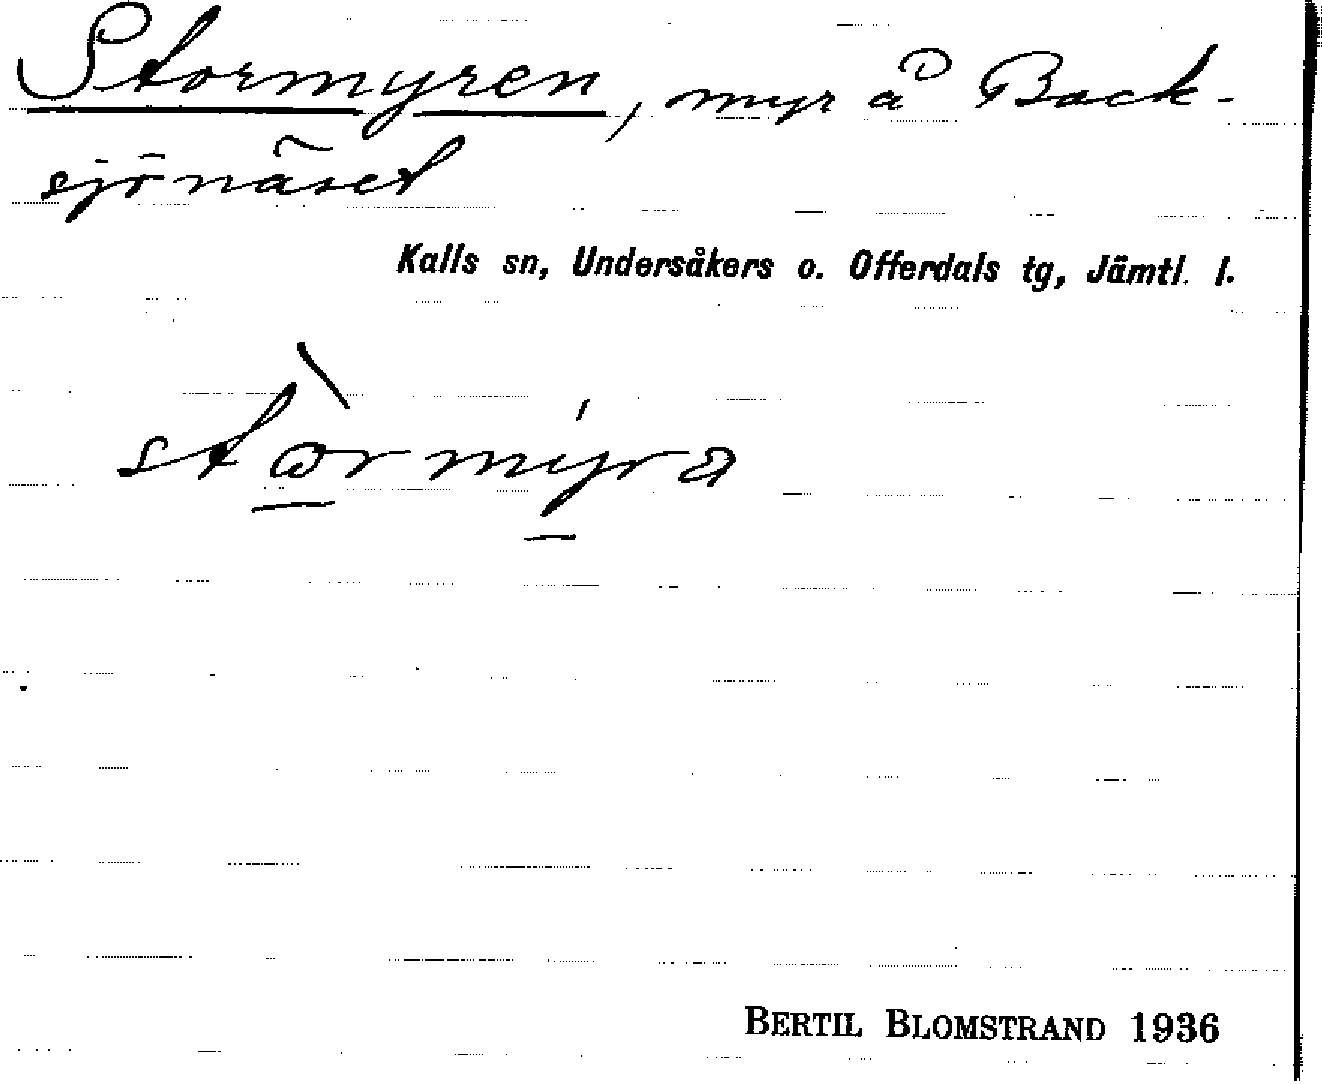 Stormyren, myr å Back-
sjönäset
Kalls sn, Undersåkers o. Offerdals tg, Jämtl. l.
stòrmýra
BERTIL BLOMSTRAND 1936